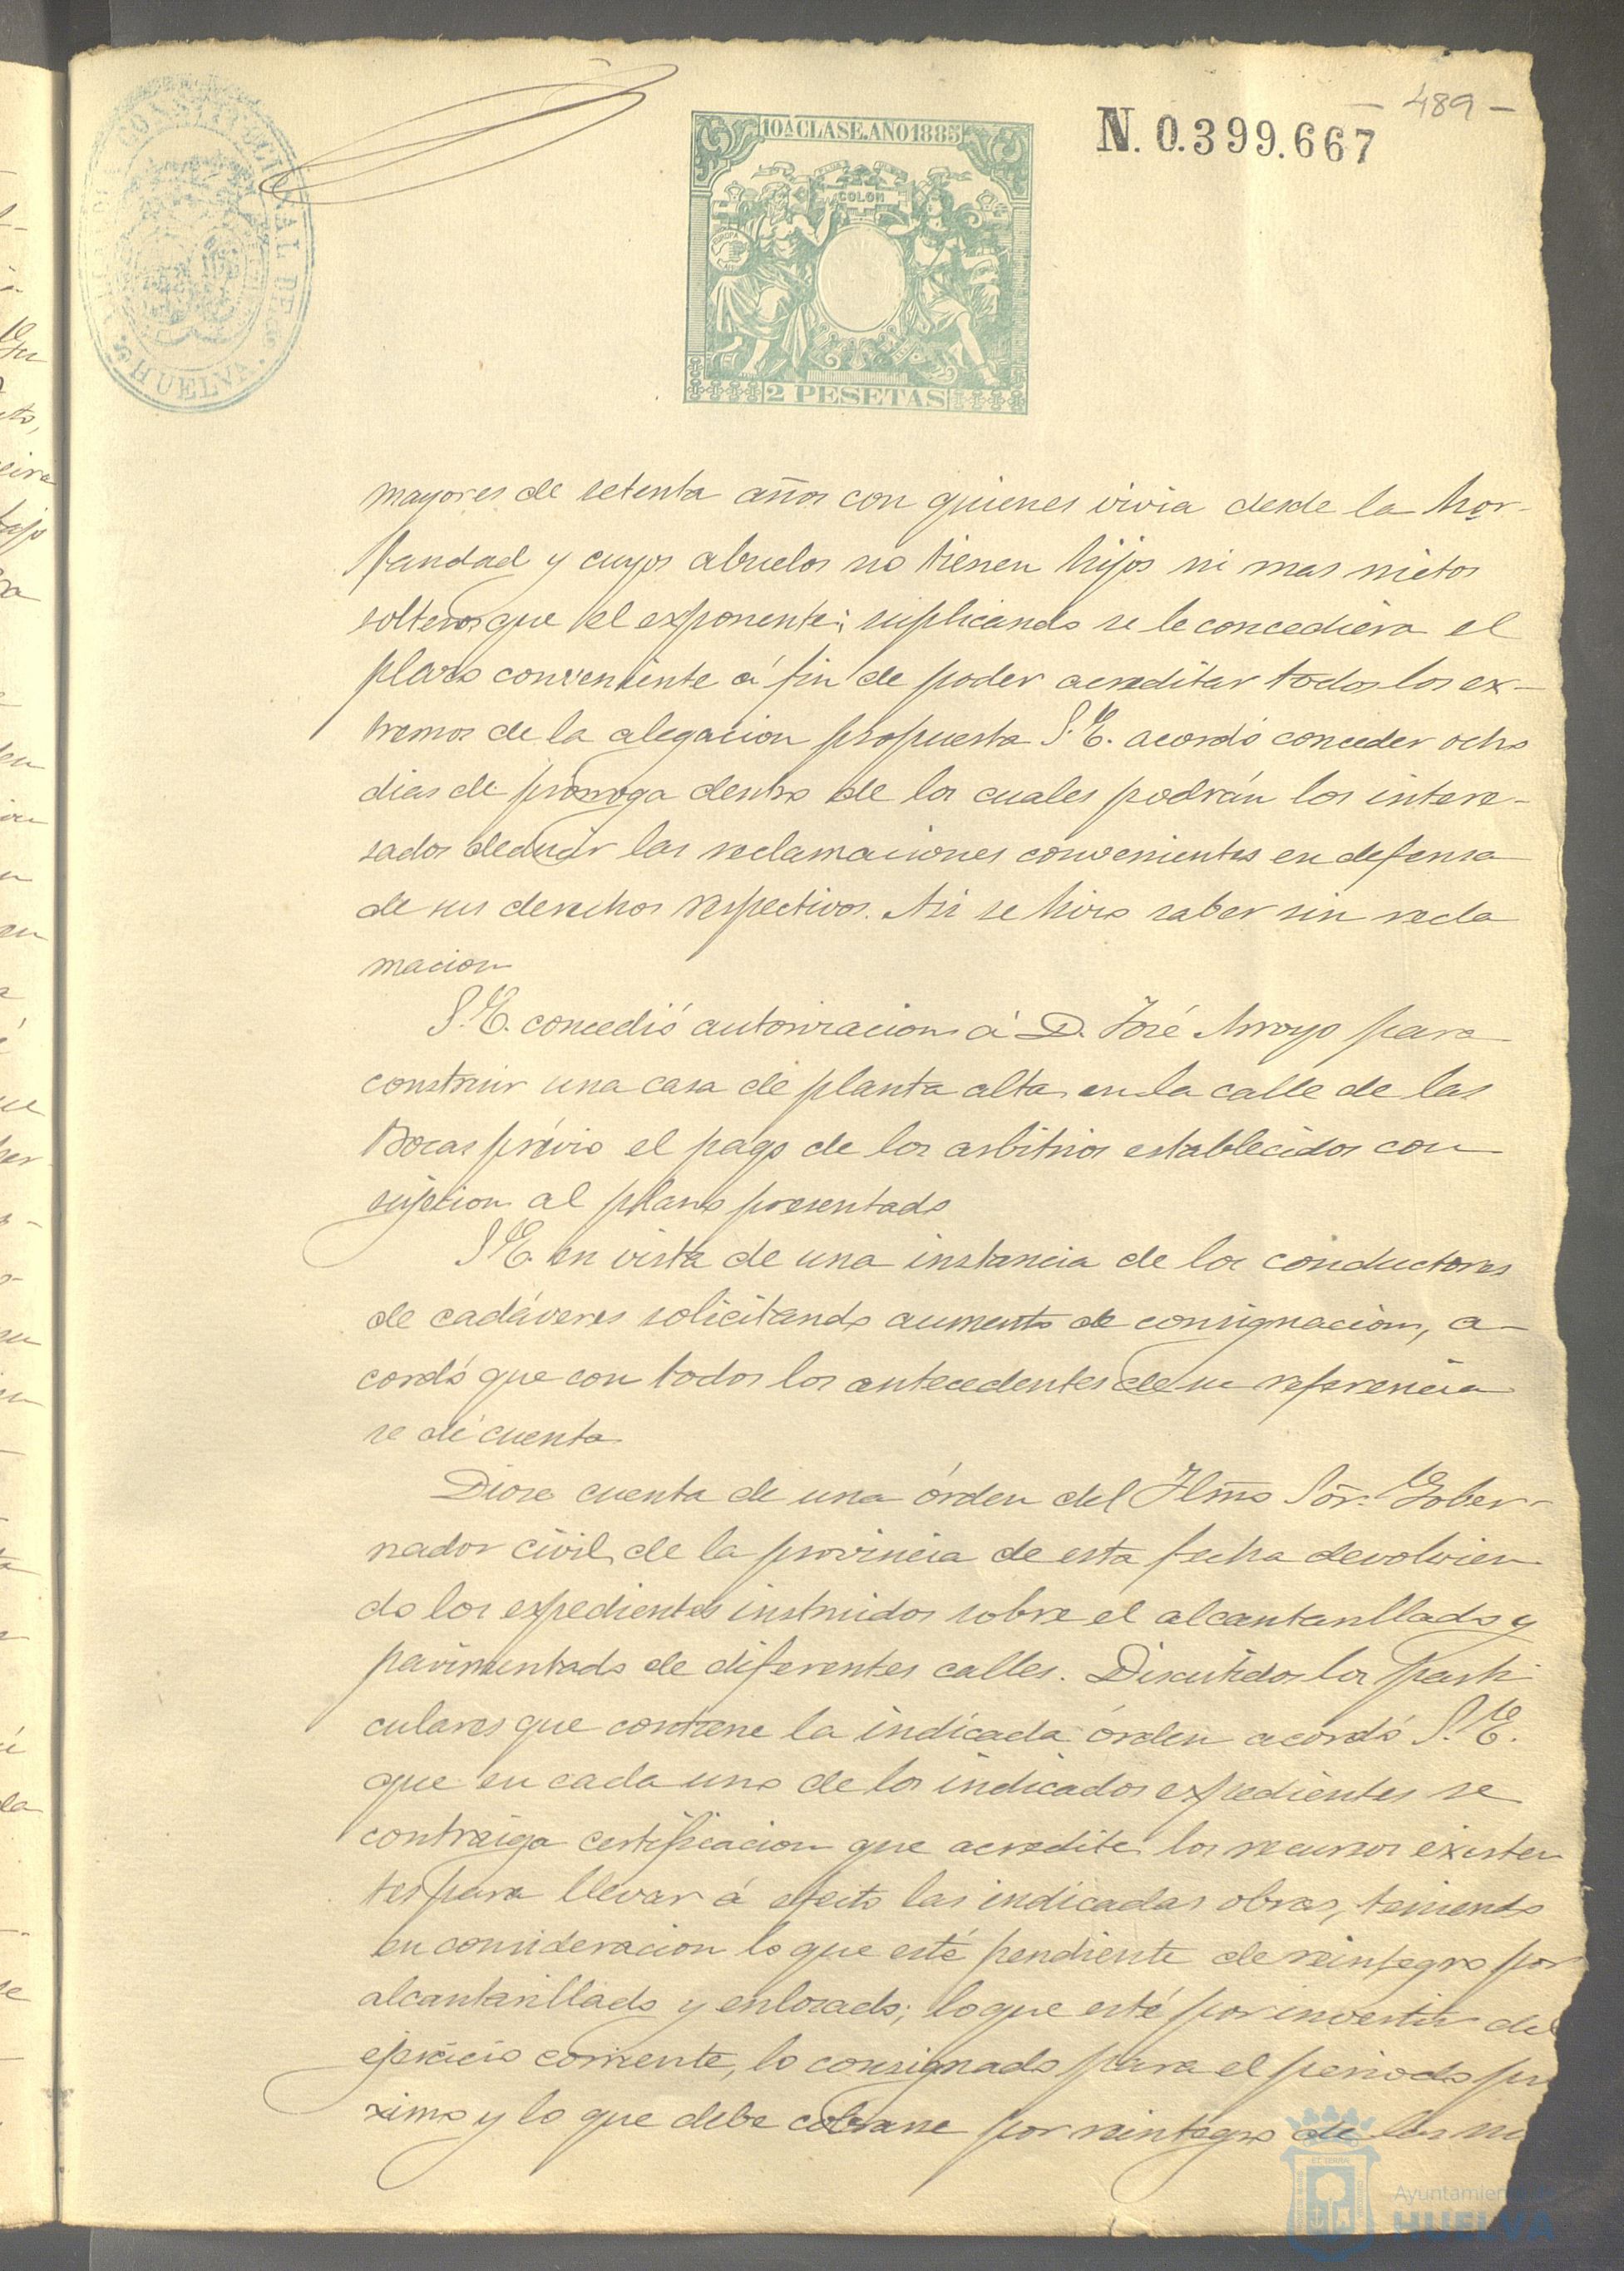 - 489 -
N. 0.399.667
10ª CLASE. AÑO 1885
COLON
EUROPA
2 PESETAS
CONSTITUCIONAL DE
HUELVA.
mayores de setenta años con quienes vivia desde la hor-
fandad y cuyos abuelos no tienen hijos ni mas nietos
solteros que el exponente; suplicando se le concediera el
plazo conveniente á fin de poder acreditar todos los ex-
tremos de la alegacion propuesta S. E. acordó conceder ocho
dias de prorroga dentro de los cuales podrán los intere-
sados deducir las reclamaciones convenientes en defensa
de sus derechos respectivos. Asi se hizo saber sin recla
macion
S. E. concedió autorizacion á D. José Arroyo para
construir una casa de planta alta en la calle de las
Bocas prévio el pago de los arbitrios establecidos con
sujecion al plano presentado
S E. en vista de una instancia de los conductores
de cadáveres solicitando aumento de consignacion, a-
cordó que con todos los antecedentes de su referencia
se dé cuenta
Diose cuenta de una órden del Ylmo Sor. Gober-
nador civil de la provincia de esta fecha devolvien
do los expedientes instruidos sobre el alcantarillado y
pavimentado de diferentes calles. Discutidos los parti
culares que contiene la indicada órden acordó S. E.
que en cada uno de los indicados expedientes se
contraiga certificacion que acredite los recursos existen
tes para llevar á efecto las indicadas obras, teniendo
en consideracion lo que esté pendiente de reintegro por
alcantarillado y enlosado; lo que esté por invertir del
ejercicio corriente, lo consignado para el periodo pro
ximo y lo que debe cobrarse por reintegro de las
Ayuntamiento de
HUELVA